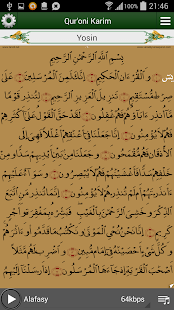 21:46
Qur'oni Karim
Yosin
بِسْمِ ٱللَّهِ ٱلرَّحْمَٰنِ ٱلرَّحِيمِ
يسٓ وَٱلْقُرْءَانِ ٱلْحَكِيمِ إِنَّكَ لَمِنَ ٱلْمُرْسَلِينَ عَلَىٰ
صِرَٰطٍ مُّسْتَقِيمٍ تَنزِيلَ ٱلْعَزِيزِ ٱلرَّحِيمِ لِتُنذِرَ قَوْمًا
مَّآ أُنذِرَ ءَابَآؤُهُمْ فَهُمْ غَٰفِلُونَ لَقَدْ حَقَّ ٱلْقَوْلُ عَلَىٰٓ أَكْثَرِهِمْ
فَهُمْ لَا يُؤْمِنُونَ إِنَّا جَعَلْنَا فِىٓ أَعْنَٰقِهِمْ أَغْلَٰلًا فَهِىَ إِلَى
ٱلْأَذْقَانِ فَهُم مُّقْمَحُونَ وَجَعَلْنَا مِنۢ بَيْنِ أَيْدِيهِمْ سَدًّا
وَمِنْ خَلْفِهِمْ سَدًّا فَأَغْشَيْنَٰهُمْ فَهُمْ لَا يُبْصِرُونَ وَسَوَآءٌ عَلَيْهِمْ
ءَأَنذَرْتَهُمْ أَمْ لَمْ تُنذِرْهُمْ لَا يُؤْمِنُونَ إِنَّمَا تُنذِرُ مَنِ ٱتَّبَعَ
ٱلذِّكْرَ وَخَشِىَ ٱلرَّحْمَٰنَ بِٱلْغَيْبِ فَبَشِّرْهُ بِمَغْفِرَةٍ وَأَجْرٍ
كَرِيمٍ إِنَّا نَحْنُ نُحْىِ ٱلْمَوْتَىٰ وَنَكْتُبُ مَا قَدَّمُوا۟ وَءَاثَٰرَهُمْ
وَكُلَّ شَىْءٍ أَحْصَيْنَٰهُ فِىٓ إِمَامٍ مُّبِينٍ وَٱضْرِبْ لَهُم مَّثَلًا
أَصْحَٰبَ ٱلْقَرْيَةِ إِذْ جَآءَهَا ٱلْمُرْسَلُونَ إِذْ أَرْسَلْنَآ إِلَيْهِمُ
Alafasy 64kbps